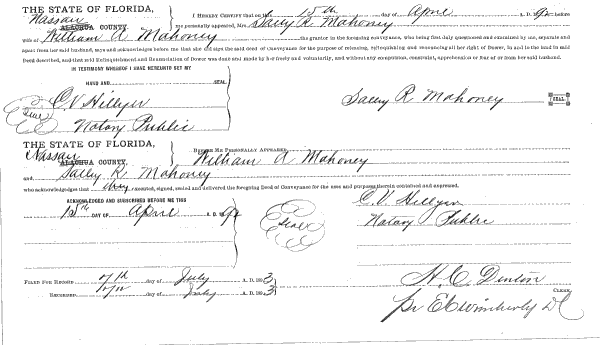 THE STATE OF FLORIDA,
Nassau
ALACHUA COUNTY.
I HEREBY CERTIFY that on the 15th day of April A. D. 92 before
me personally appeared, Mrs. Sally R. Mahoney
wife of William A Mahoney the grantor in the foregoing conveyance, who being first duly questioned and examined by me, separate and
apart from her said husband, says and acknowledges before me that she did sign the said deed of Conveyance for the purpose of releasing, relinquishing and renouncing all her right of Dower, in and to the land in said
Deed described, and that said Relinquishment and Renunciation of Dower was done and made by her freely and voluntarily, and without any compulsion, constraint, apprehension or fear of or from her said husband.
IN TESTIMONY WHEREOF I HAVE HEREUNTO SET MY
HAND AND SEAL
C. V. Hillyer
Seal
Notary Public
Sally R Mahoney
SEAL
THE STATE OF FLORIDA,
Nassau
ALACHUA COUNTY.
BEFORE ME PERSONALLY APPEARED William A Mahoney
and Sally R Mahoney
who acknowledges that they executed, signed, sealed and delivered the foregoing Deed of Conveyance for the uses and purposes therein contained and expressed.
ACKNOWLEDGED AND SUBSCRIBED BEFORE ME THIS
15th DAY OF April A. D. 92
Seal
C. V. Hillyer
Notary Public
FILED FOR RECORD 7th day of July A. D. 1893
RECORDED day of July A. D. 1893
H. C. Denton
CLERK
pr E C Wimberly DC